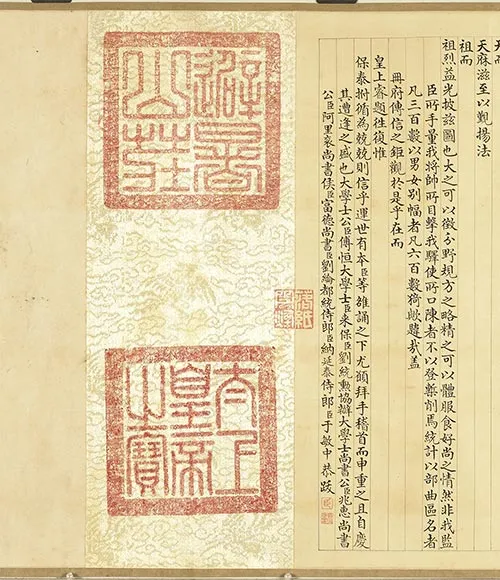 天庥滋至以覲揚法
祖而
祖烈益光披茲圖也大之可以徵分野規方之略精之可以體服食好尚之情然非我監
臣所手量我將帥所目擊我驛使所口陳者不以登槧削焉統計以部曲區名者
凡三百數以男女別幅者凡六百數猗歟韙哉蓋
冊府傳信之鉅觀於是乎在而
皇上睿題往復惟
保泰拊循為兢兢則信乎運世有本臣等雒誦之下尤願拜手稽首而申重之且自慶
其遭逢之盛也大學士公臣傅恒大學士臣來保臣劉統勳協辦大學士尚書公臣兆惠尚書
公臣阿里袞尚書侯臣富德尚書臣劉綸都統侍郎臣納延泰侍郎臣于敏中恭跋
避暑
山莊
太上
皇帝
之寶